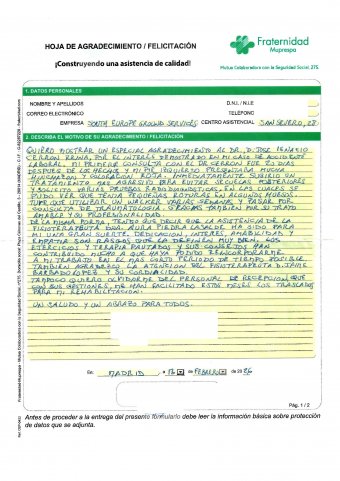 HOJA DE AGRADECIMIENTO / FELICITACIÓN
Fraternidad
Muprespa
¡Construyendo una asistencia de calidad!
Mutua Colaboradora con la Seguridad Social, 275
1. DATOS PERSONALES
NOMBRE Y APELLIDOS
D.N.I. / N.I.E
CORREO ELECTRÓNICO
TELÉFONO
EMPRESA SOUTH EUROPE GROUND SERVICES CENTRO ASISTENCIAL SAN SEVERO, 28
2. DESCRIBA EL MOTIVO DE SU AGRADECIMIENTO / FELICITACIÓN
QUIERO MOSTRAR UN ESPECIAL AGRADECIMIENTO AL DR. D. JOSE IGNACIO
CERRON POR EL INTERES DEMOSTRADO EN MI CASO DE ACCIDENTE
LABORAL. MI PRIMERA CONSULTA CON EL DR CERRON FUE 20 DIAS
DESPUES DE LOS HECHOS Y MI PIE IZQUIERDO PRESENTABA MUCHA
HINCHAZON Y COLORACION ROJA. INMEDIATAMENTE SUGIRIO UN
TRATAMIENTO MAS AGRESIVO PARA EVITAR SECUELAS POSTERIORES
Y SOLICITO VARIAS PRUEBAS RADIODIAGNOSTICAS, EN LAS CUALES SE
PUDO VER QUE TENIA PEQUEÑAS ROTURAS EN ALGUNOS HUESOS.
TUVE QUE UTILIZAR UN WALKER VARIAS SEMANAS Y PASAR POR
CONSULTA DE TRAUMATOLOGIA. GRACIAS TAMBIEN POR SU TRATO
AMABLE Y SU PROFESIONALIDAD.
DE LA MISMA FORMA, TENGO QUE DECIR QUE LA ASISTENCIA DE LA
FISIOTERAPEUTA DÑA. AURA PIEDRA LASALDE HA SIDO PARA
MI UNA GRAN SUERTE. DEDICACION, INTERES, AMABILIDAD Y
EMPATIA SON RASGOS QUE LA DEFINEN MUY BIEN. LOS
EJERCICIOS Y TERAPIA PAUTADOS Y SUS CONSEJOS HAN
CONTRIBUIDO MUCHO A QUE HAYA PODIDO REINCORPORARME
A MI TRABAJO EN EL MAS CORTO PERIODO DE TIEMPO POSIBLE.
TAMBIEN AGRADEZCO LA ATENCION DEL FISIOTERAPEUTA D. JAIME
BARBADO LOPEZ Y SU CORDIALIDAD.
TAMPOCO QUIERO OLVIDARME DEL PERSONAL DE RECEPCION QUE
CON SUS GESTIONES, ME HAN FACILITADO ESTOS MESES LOS TRASLADOS
PARA MI REHABILITACION.
UN SALUDO Y UN ABRAZO PARA TODOS.
En: MADRID, a 12 de FEBRERO de 2026
Pág. 1 / 2
Antes de proceder a la entrega del presente formulario debe leer la información básica sobre protección
de datos que se adjunta.